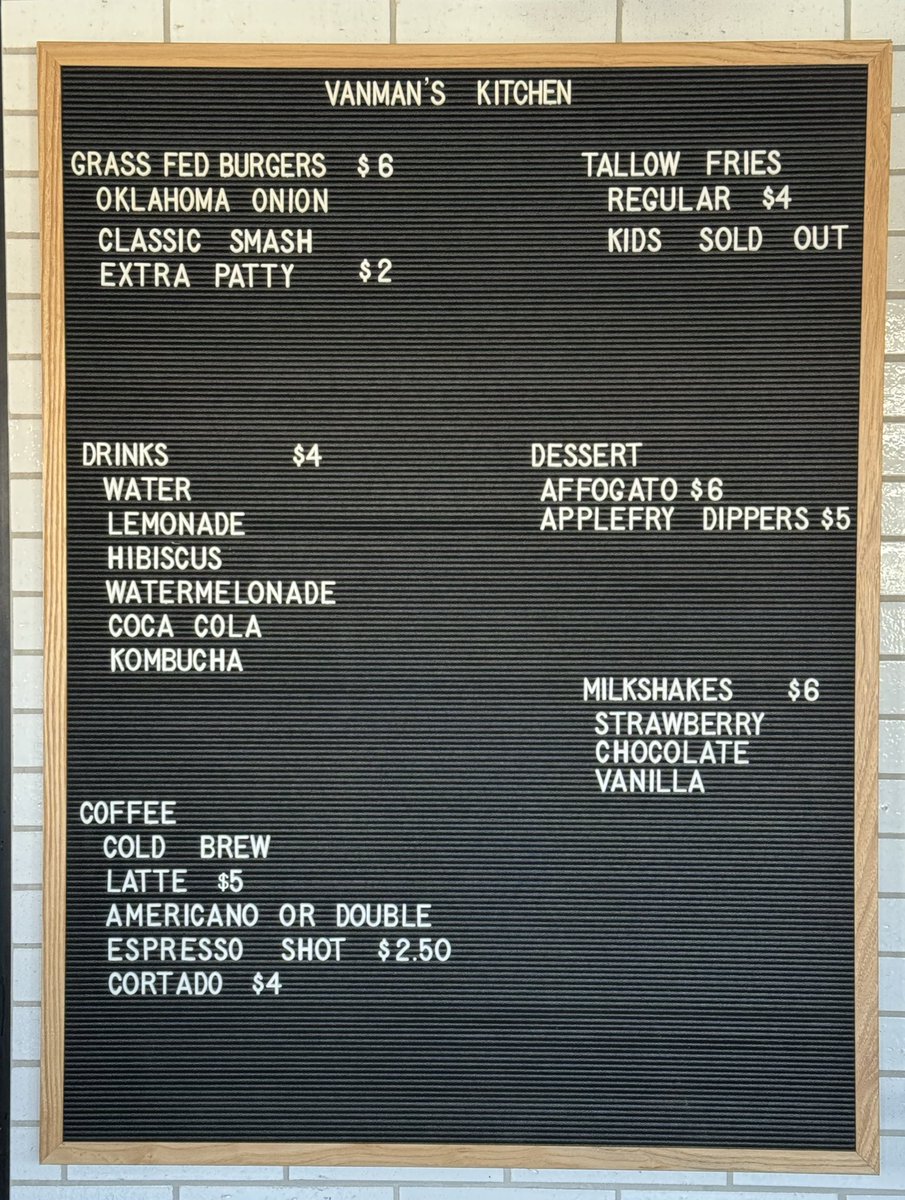 VANMAN'S KITCHEN
GRASS FED BURGERS $6
OKLAHOMA ONION
CLASSIC SMASH
EXTRA PATTY $2
TALLOW FRIES
REGULAR $4
KIDS SOLD OUT
DRINKS $4
WATER
LEMONADE
HIBISCUS
WATERMELONADE
COCA COLA
KOMBUCHA
DESSERT
AFFOGATO $6
APPLEFRY DIPPERS $5
MILKSHAKES $6
STRAWBERRY
CHOCOLATE
VANILLA
COFFEE
COLD BREW
LATTE $5
AMERICANO OR DOUBLE
ESPRESSO SHOT $2.50
CORTADO $4